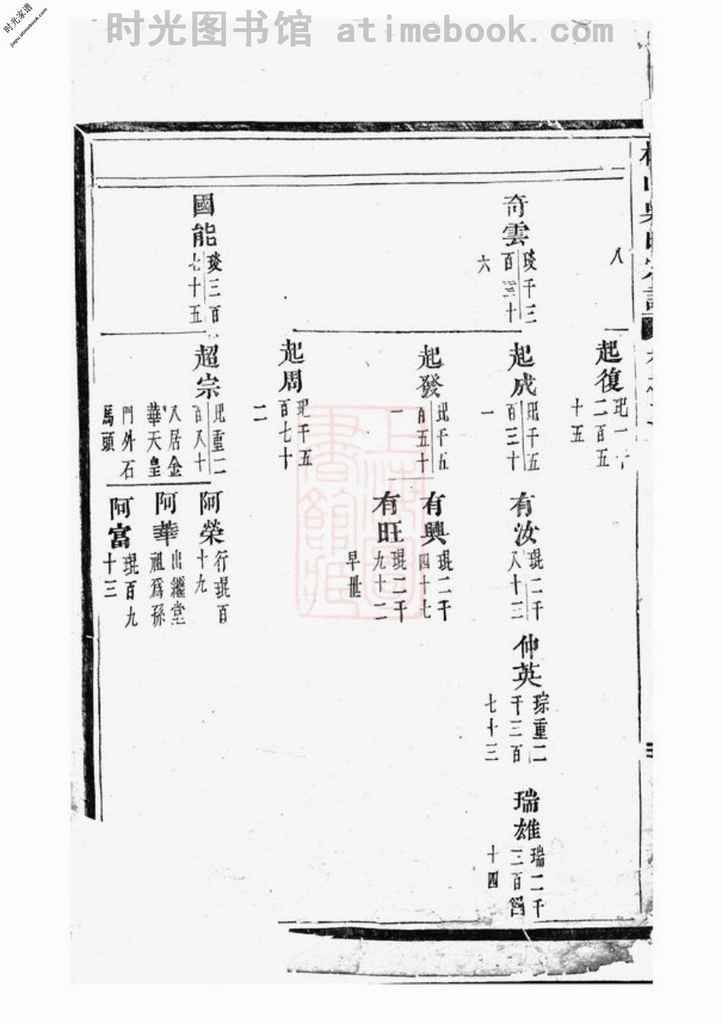 时光图书馆 atimebook.com
时光家谱
jiapu.atimebook.com
八
起復
二百五
十五
奇雲
琰千三
六
起成
玘千五
百三十
一
有汝
琨二千
八十三
仲英
琮重二
千三百
七十三
瑞雄
瑞二千
三百
十四
起發
玘千五
百五十
一
有興
琨二千
四十七
有旺
琨二千
九十二
早世
起周
玘千五
百七十
二
國能
琰三百
七十五
超宗
玘重二
百八十
八居金
華天皇
門外石
馬頭
阿榮
行琨百
十九
阿華
出繼堂
祖爲孫
阿富
琨百九
十三